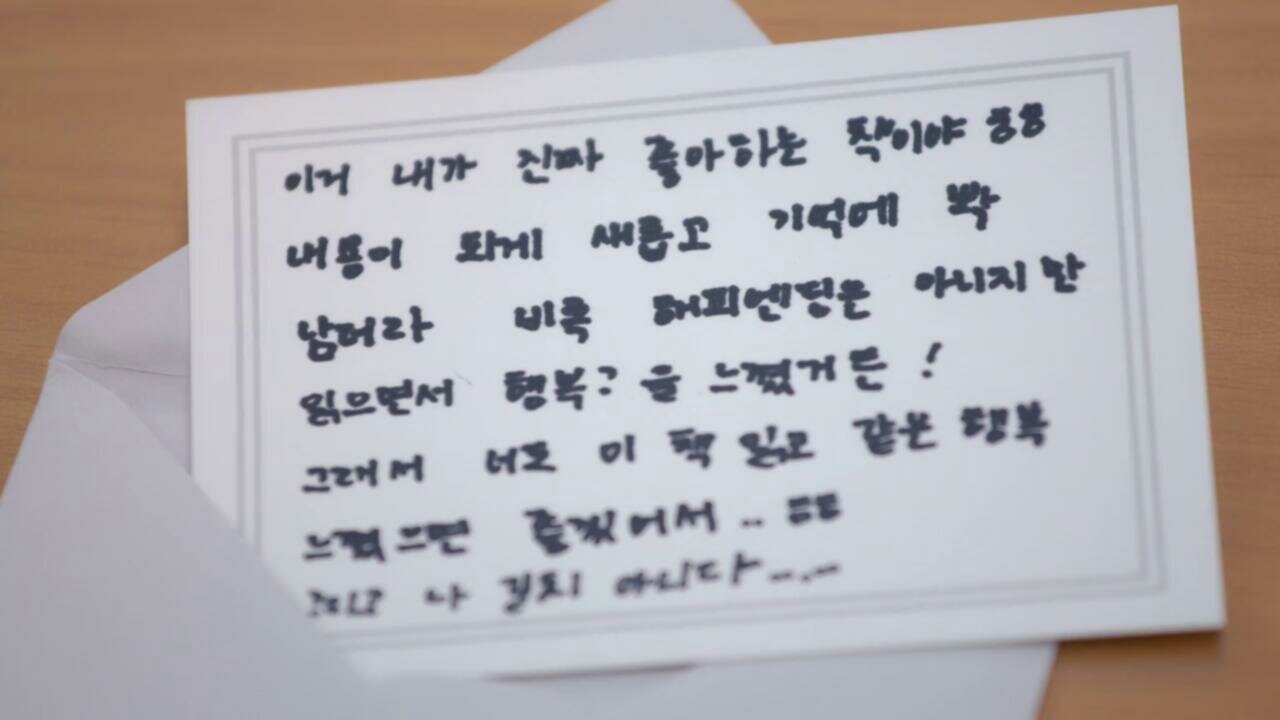 이거 내가 진짜 좋아하는 책이야 ㅎㅎ
내용이 되게 새롭고 기억에 빡
남더라 비록 해피엔딩은 아니지만
읽으면서 행복?을 느꼈거든!
그래서 너도 이 책 읽고 같은 행복
느꼈으면 좋겠어서.. ㅎㅎ
나 아니다